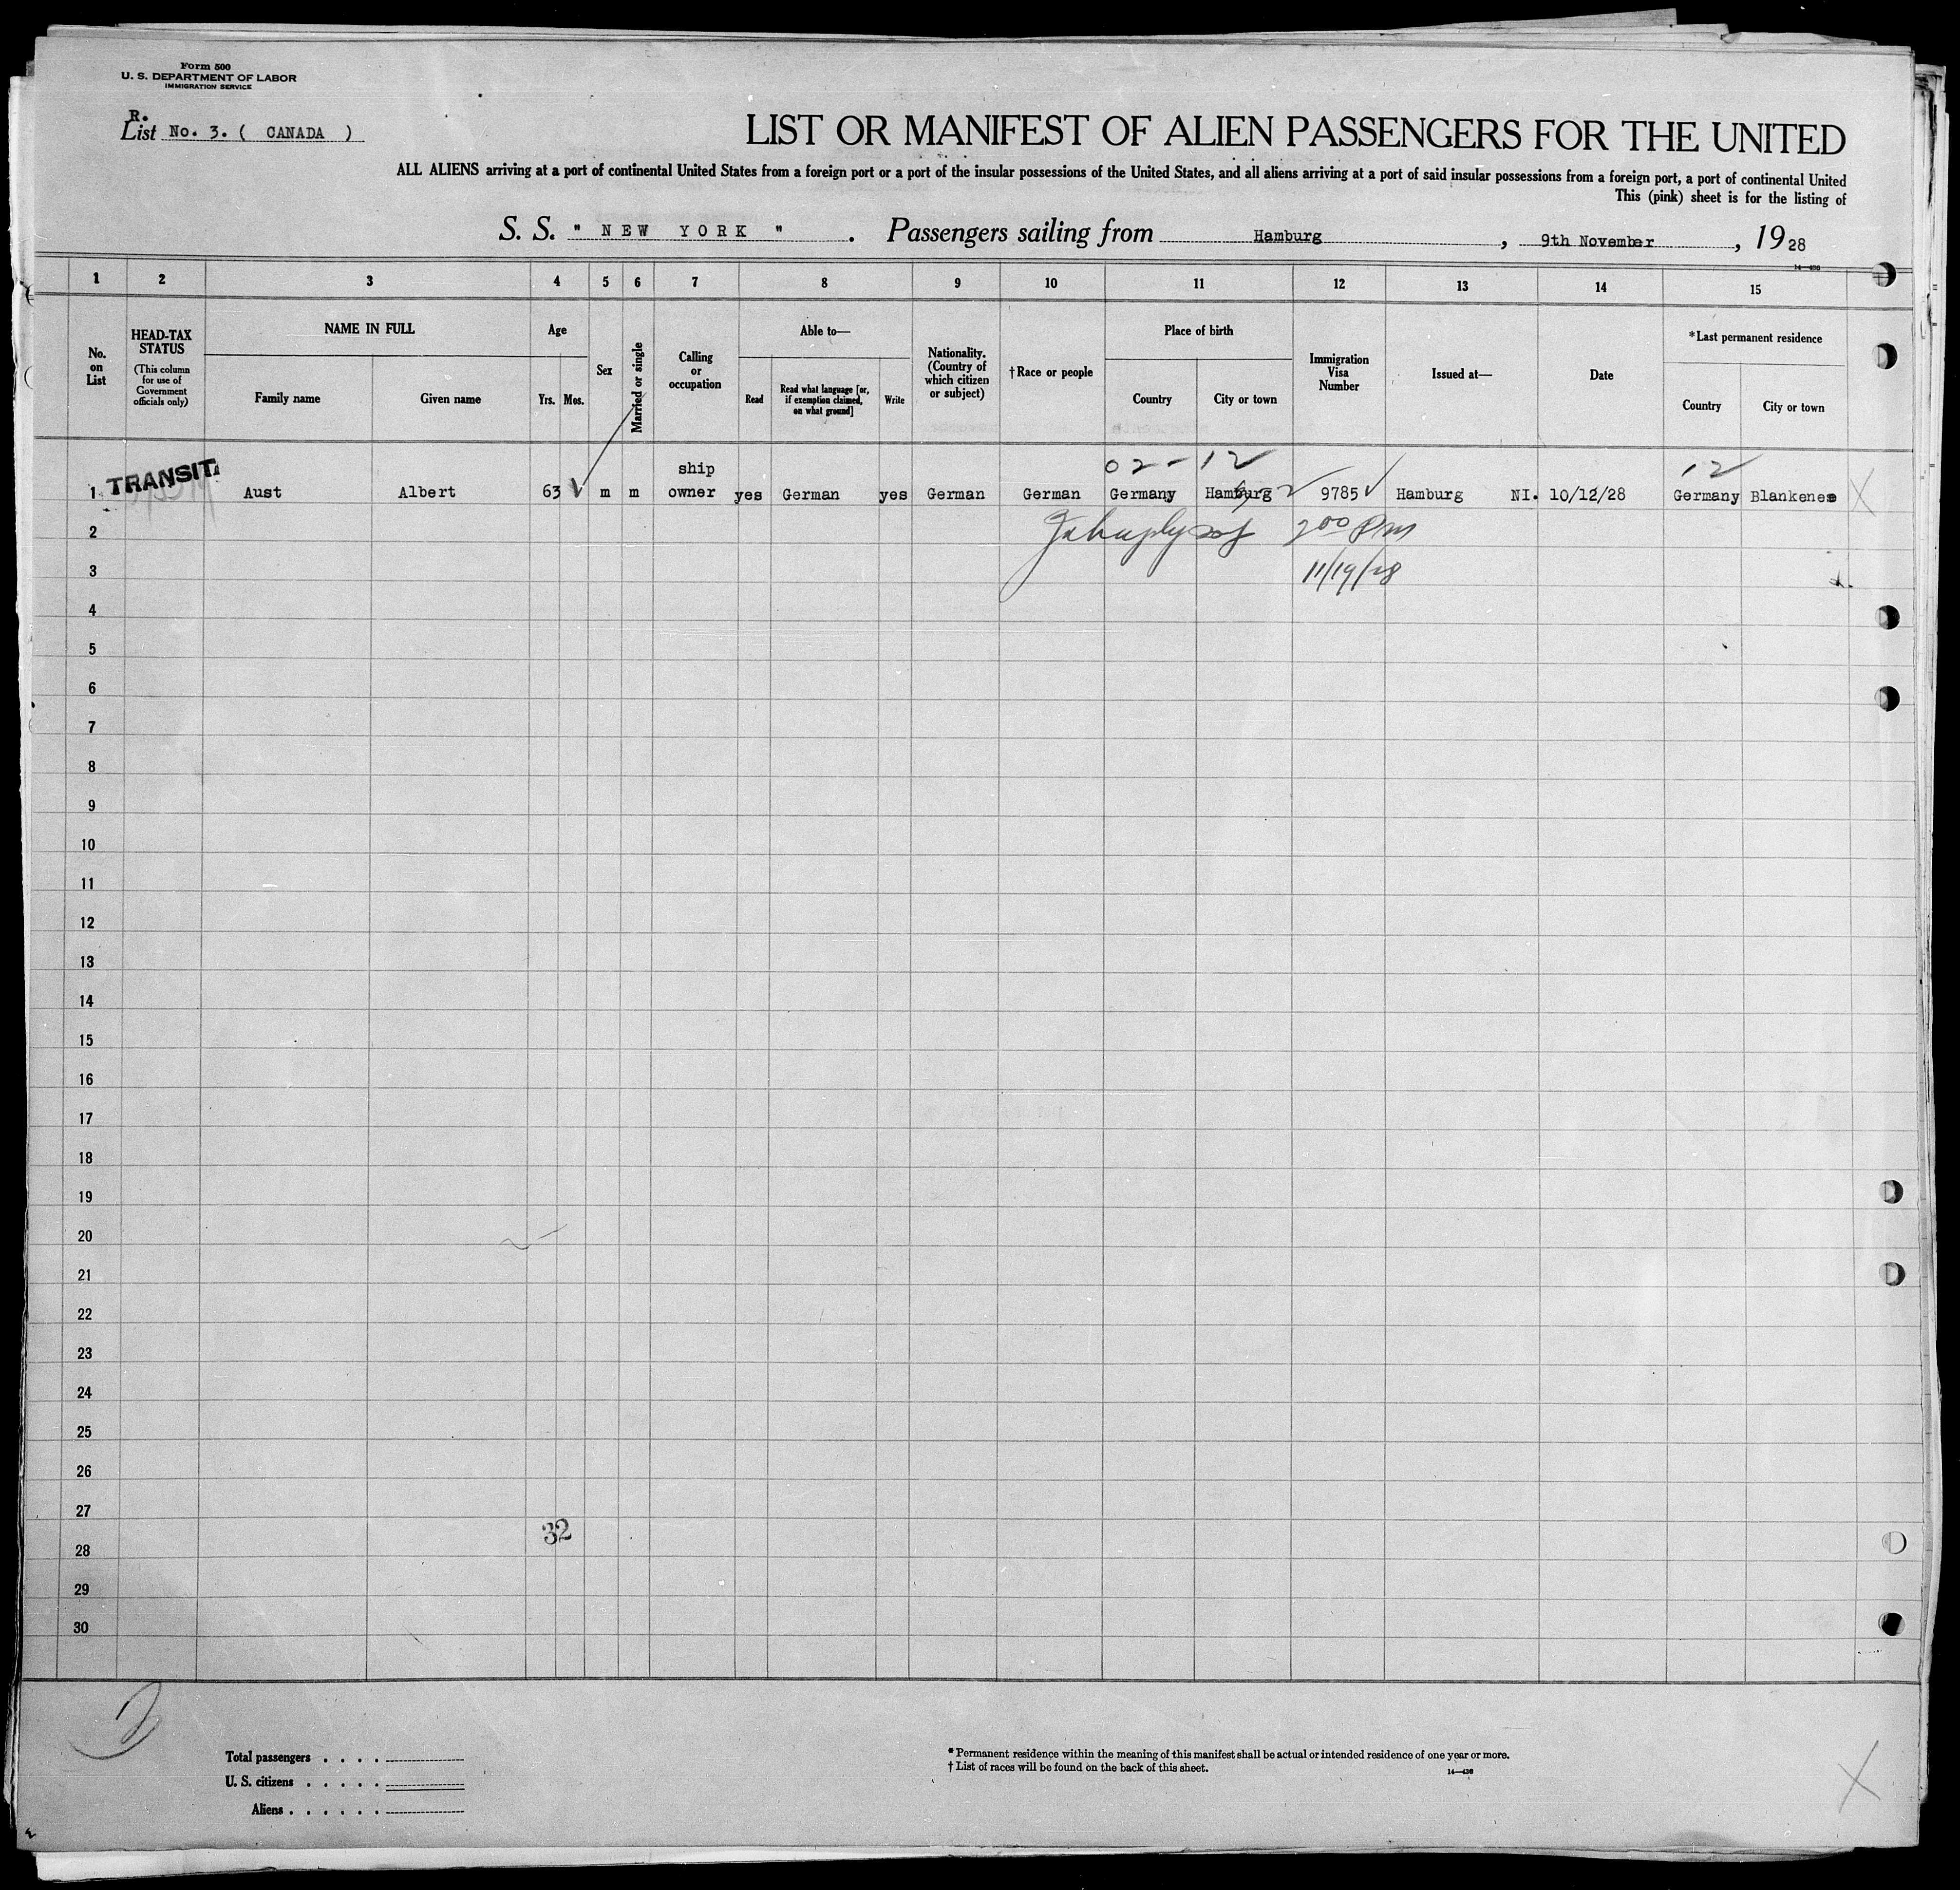 Form 500
U. S. DEPARTMENT OF LABOR
IMMIGRATION SERVICE
R.
List No. 3. ( CANADA )
LIST OR MANIFEST OF ALIEN PASSENGERS FOR THE UNITED
ALL ALIENS arriving at a port of continental United States from a foreign port or a port of the insular possessions of the United States, and all aliens arriving at a port of said insular possessions from a foreign port, a port of continental United
This (pink) sheet is for the listing of
S. S. " NEW YORK " . Passengers sailing from Hamburg , 9th November , 1928
14—430
1 2 3 4 5 6 7 8 9 10 11 12 13 14 15
No. on List
HEAD-TAX STATUS
(This column for use of Government officials only)
NAME IN FULL
Family name Given name
Age
Yrs. Mos.
Sex
Married or single
Calling or occupation
Able to—
Read
Read what language [or, if exemption claimed, on what ground]
Write
Nationality. (Country of which citizen or subject)
†Race or people
Place of birth
Country City or town
Immigration Visa Number
Issued at—
Date
*Last permanent residence
Country City or town
02-12 12
1 TRANSIT Aust Albert 63 m m ship owner yes German yes German German Germany Hamburg 9785 Hamburg NI. 10/12/28 Germany Blankenese
2 2 00 Pm
3 11/19/28
4
5
6
7
8
9
10
11
12
13
14
15
16
17
18
19
20
21
22
23
24
25
26
27
32
28
29
30
Total passengers . . . .
U. S. citizens . . . . .
Aliens . . . . . .
* Permanent residence within the meaning of this manifest shall be actual or intended residence of one year or more.
† List of races will be found on the back of this sheet.
14—430